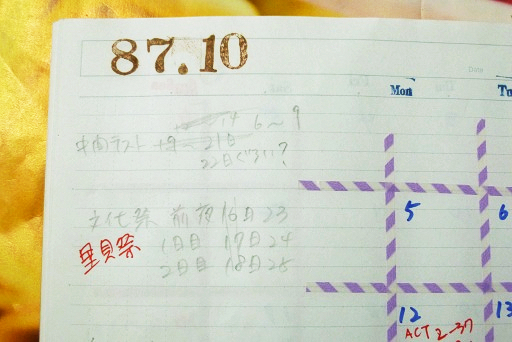 87.10
Date
Mon
Tu
14 6～9
中間テスト 19 21日
22日ぐらい?
5
6
文化祭 前夜 16日 23
星貝祭 1日目 17日 24
2日目 18日 25
12
13
ACT 2-37